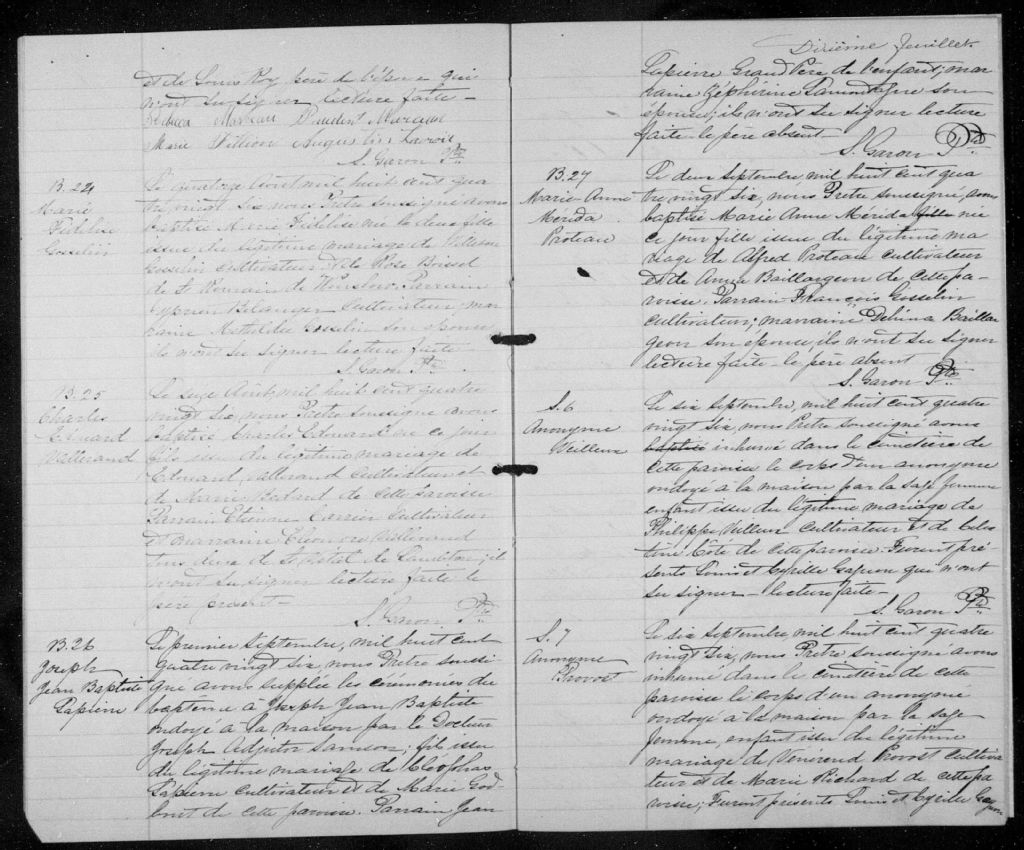 et de Louis Roy père de l'épouse qui
n'ont su signer lecture faite -
Marceau Prudent Marceau
Marie Augustin
S. Garon Ptre
B. 24
Marie
Fidélise
Gosselin
Le quatorze Août mil huit cent qua
tre vingt six nous Prêtre soussigné avons
baptisé Marie Fidélise née la fille
issue du légitime mariage de
Gosselin cultivateur et de Rose
de St Romain de Winslow. Parrain
Cyprien Bélanger cultivateur, mar
raine Gosselin son épouse
ils n'ont su signer lecture faite
S. Garon Ptre
B. 25
Charles
Edouard
Vallerand
Le seize Août mil huit cent quatre
vingt six, nous Prêtre soussigné avons
baptisé Charles Edouard né ce jour
fils issu du légitime mariage de
Edouard Vallerand cultivateur et
de Marie Bedard de cette paroisse
Parrain Etienne Carrier cultivateur
et marraine Eléonore Vallerand
tous deux de ils
n'ont su signer lecture faite le
père présent
S. Garon Ptre
B. 26
Joseph
Jean Baptiste
Lapierre
Le premier Septembre, mil huit cent
quatre vingt six, nous Prêtre soussi
gné avons supplée les cérémonies du
baptême à Joseph Jean Baptiste
ondoyé à la maison par le Docteur
Joseph Adjutor Samson; fils issu
du légitime mariage de Cléophas
Lapierre cultivateur et de Marie God
bout de cette paroisse. Parrain Jean
Dixième feuillet.
Lapierre Grand Père de l'enfant; mar
raine Zéphirine Lamontagne son
épouse; ils n'ont su signer lecture
faite - le père absent -
S. Garon Ptre
B. 27
Marie Anne
Mérida
Proteau
Le deux Septembre, mil huit cent qua
tre vingt six, nous Prêtre soussigné, avons
baptisé Marie Anne Mérida fille née
ce jour fille issue du légitime ma
riage de Alfred Proteau cultivateur
et de Anna Baillargeon de cette pa-
roisse. Parrain François Gosselin
cultivateur; marraine Délima Baillar
geon son épouse, ils n'ont su signer
lecture faite - le père absent
S. Garon Ptre
S. 6
Anonyme
Veilleux
Le six Septembre, mil huit cent quatre
vingt six, nous Prêtre soussigné avons
baptisé inhumé dans le cimetière de
cette paroisse le corps d'un anonyme
ondoyé à la maison par la sage femme
enfant issu du légitime mariage de
Philippe Veilleux cultivateur et de Céles
tine Côté de cette paroisse. Furent pré-
sents Louis et Cyrille Gagnon qui n'ont
su signer - lecture faite -
S. Garon Ptre
S. 7
Anonyme
Provost
Le six Septembre, mil huit cent quatre
vingt six, nous Prêtre soussigné avons
inhumé dans le cimetière de cette
paroisse le corps d'un anonyme
ondoyé à la maison par la sage
femme, enfant issu du légitime
mariage de Vénérend Provost cultiva
teur et de Marie Richard de cette pa
roisse; Furent présents Louis et Cyrille Gagnon